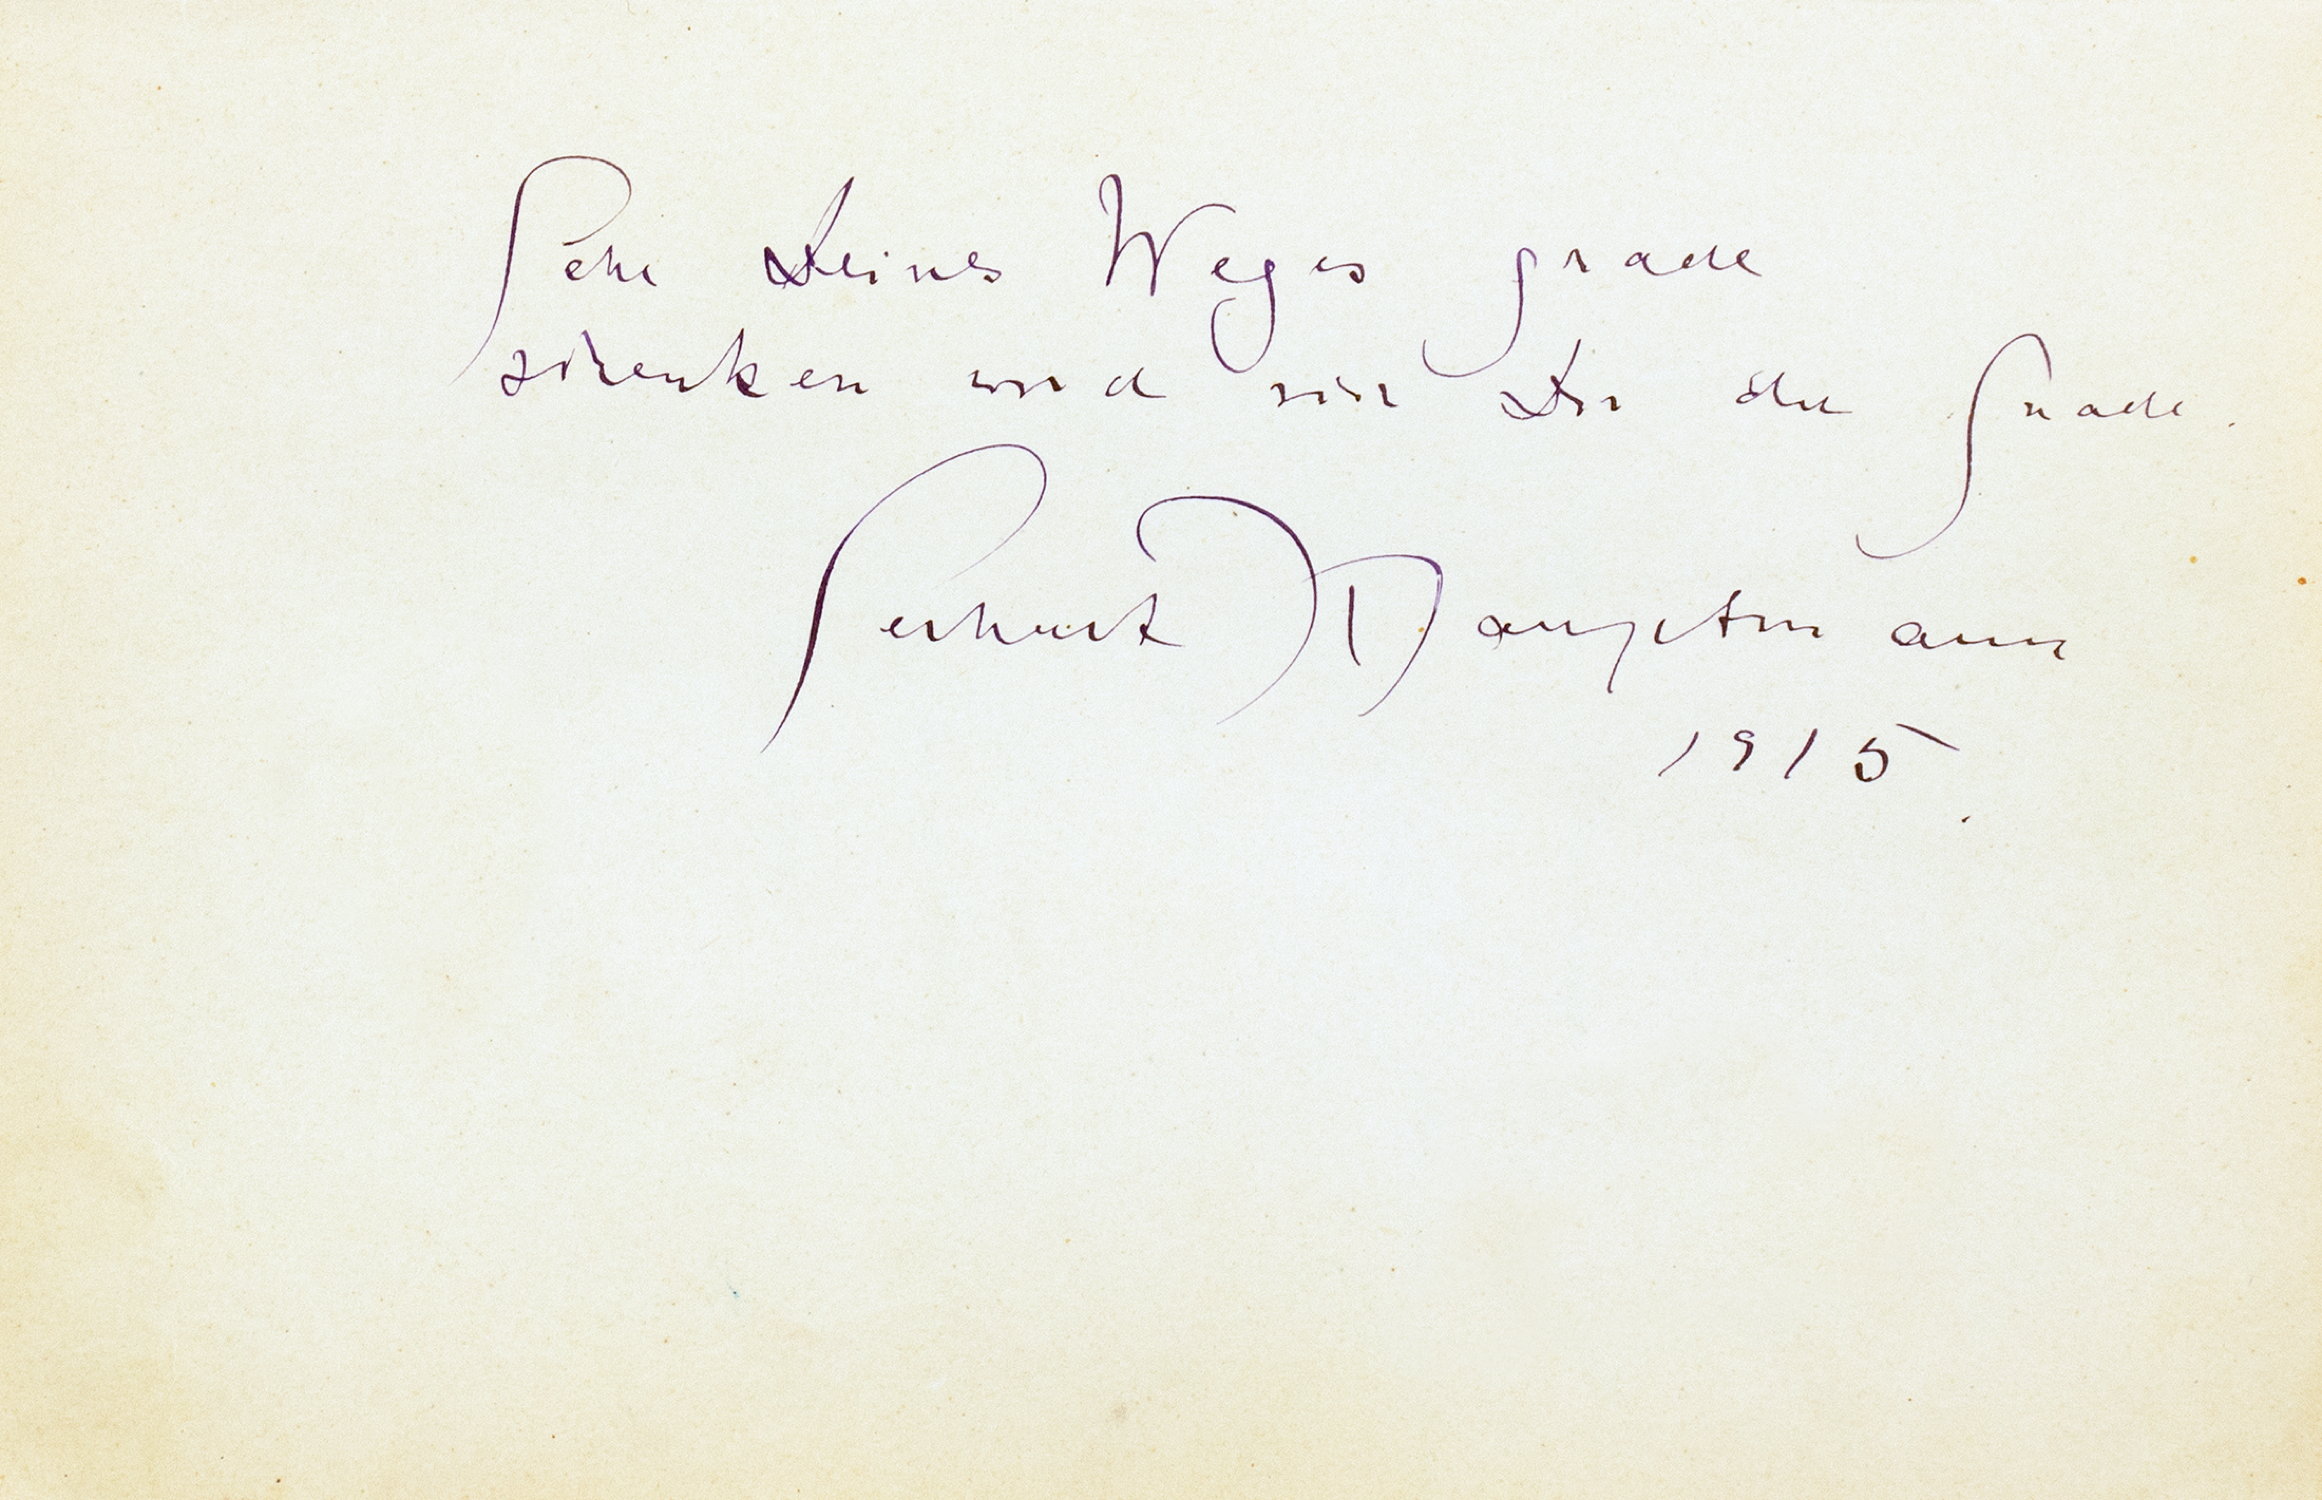 Gehe Deines Weges grade
schenken wird sie Dir die Gnade.
Gerhart Hauptmann
1915.